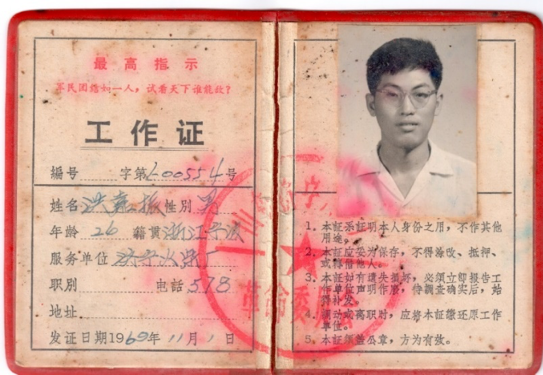 最高指示
军民团结如一人，试看天下谁能敌？
工作证
编号 字第1-00554号
姓名 洪 振 性别 男
年龄 26 籍贯 浙江宁波
服务单位 济宁 厂
职别 电话 578
地址
发证日期1969年11月1日
革命委
1. 本证系证明本人身份之用，不作其他
用途。
2. 本证应妥为保存，不得涂改、抵押、
或转借他人。
3. 本证如有遗失损坏，必须立即报告工
作单位声明作废，待调查确实后，始
得补发。
4. 调动或离职时，应将本证缴还原工作
单位。
5. 本证须盖公章，方为有效。